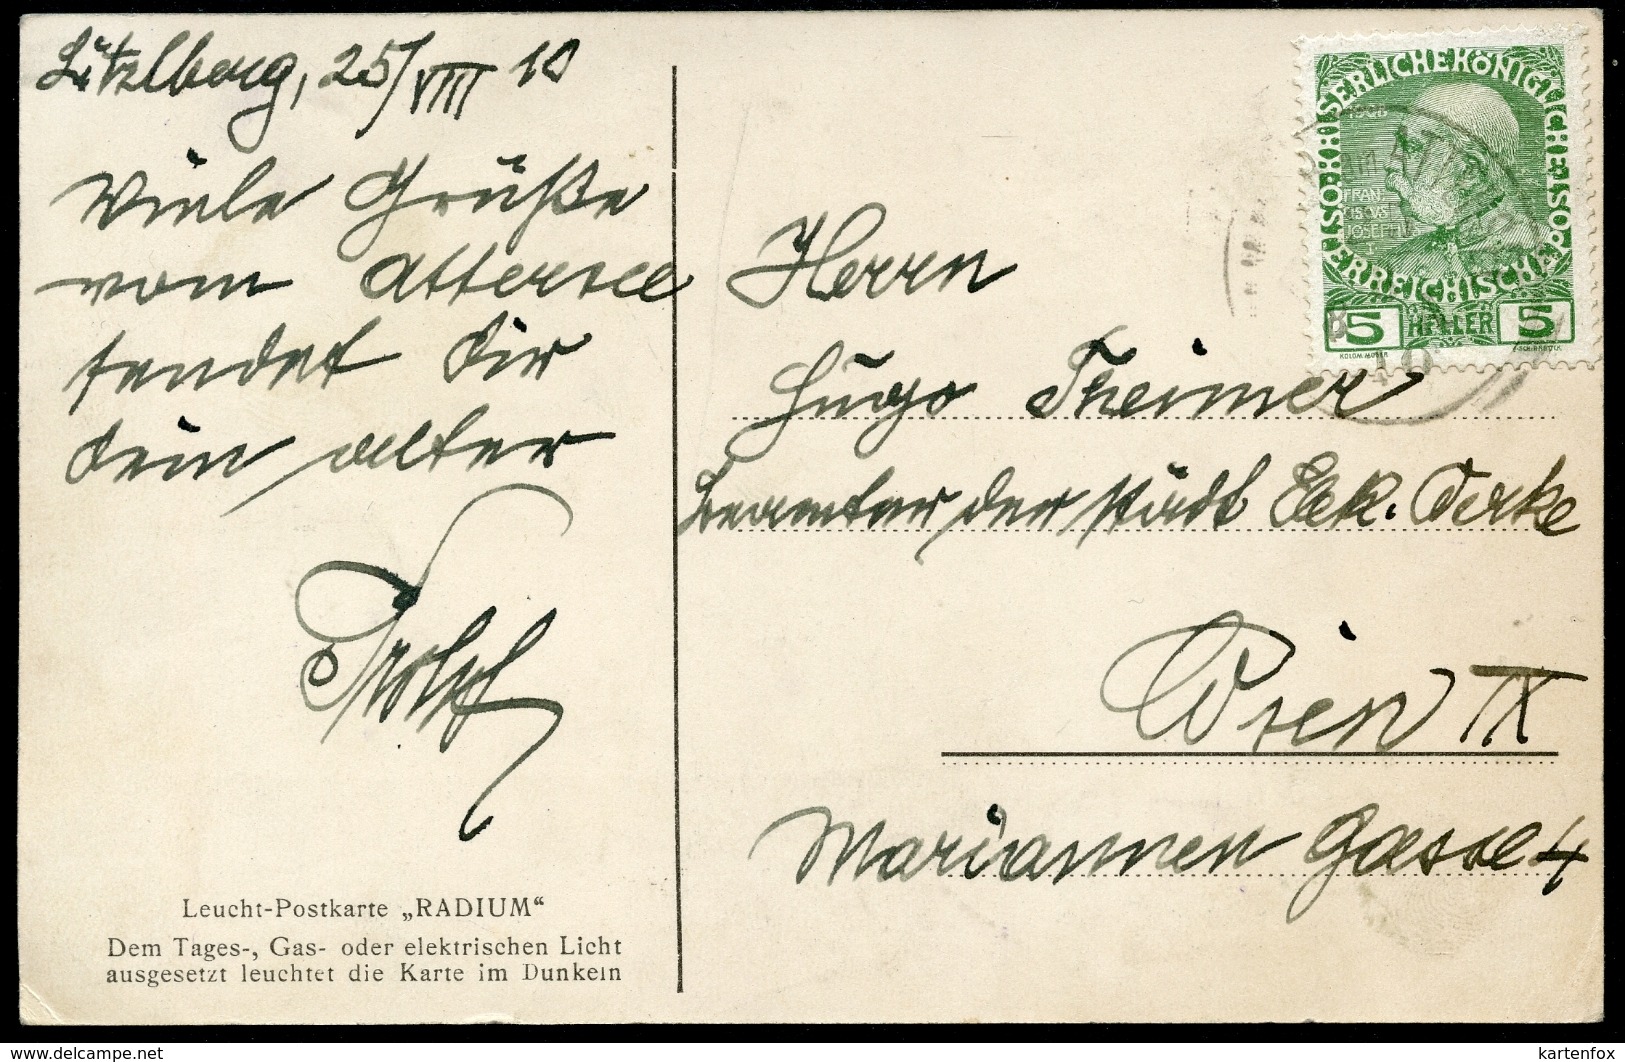 Litzlberg, 25/VIII 10
Viele Grüße
vom Attersee
sendet Dir
Dein alter
Leucht-Postkarte „RADIUM“
Dem Tages-, Gas- oder elektrischen Licht
ausgesetzt leuchtet die Karte im Dunkeln
KAISERLICHE KÖNIGLICHE
ÖSTERREICHISCHE POST
1908
FRAN
CISCVS
JOSEPHVS
I
5 HELLER 5
KOLOM. MOSER
F. SCHIRNBÖCK
Herrn
Hugo Theimer
Beamter der städt Elek. Werke
Wien IX
Mariannen Gasse 4
kartenfox
http://www.delcampe.net